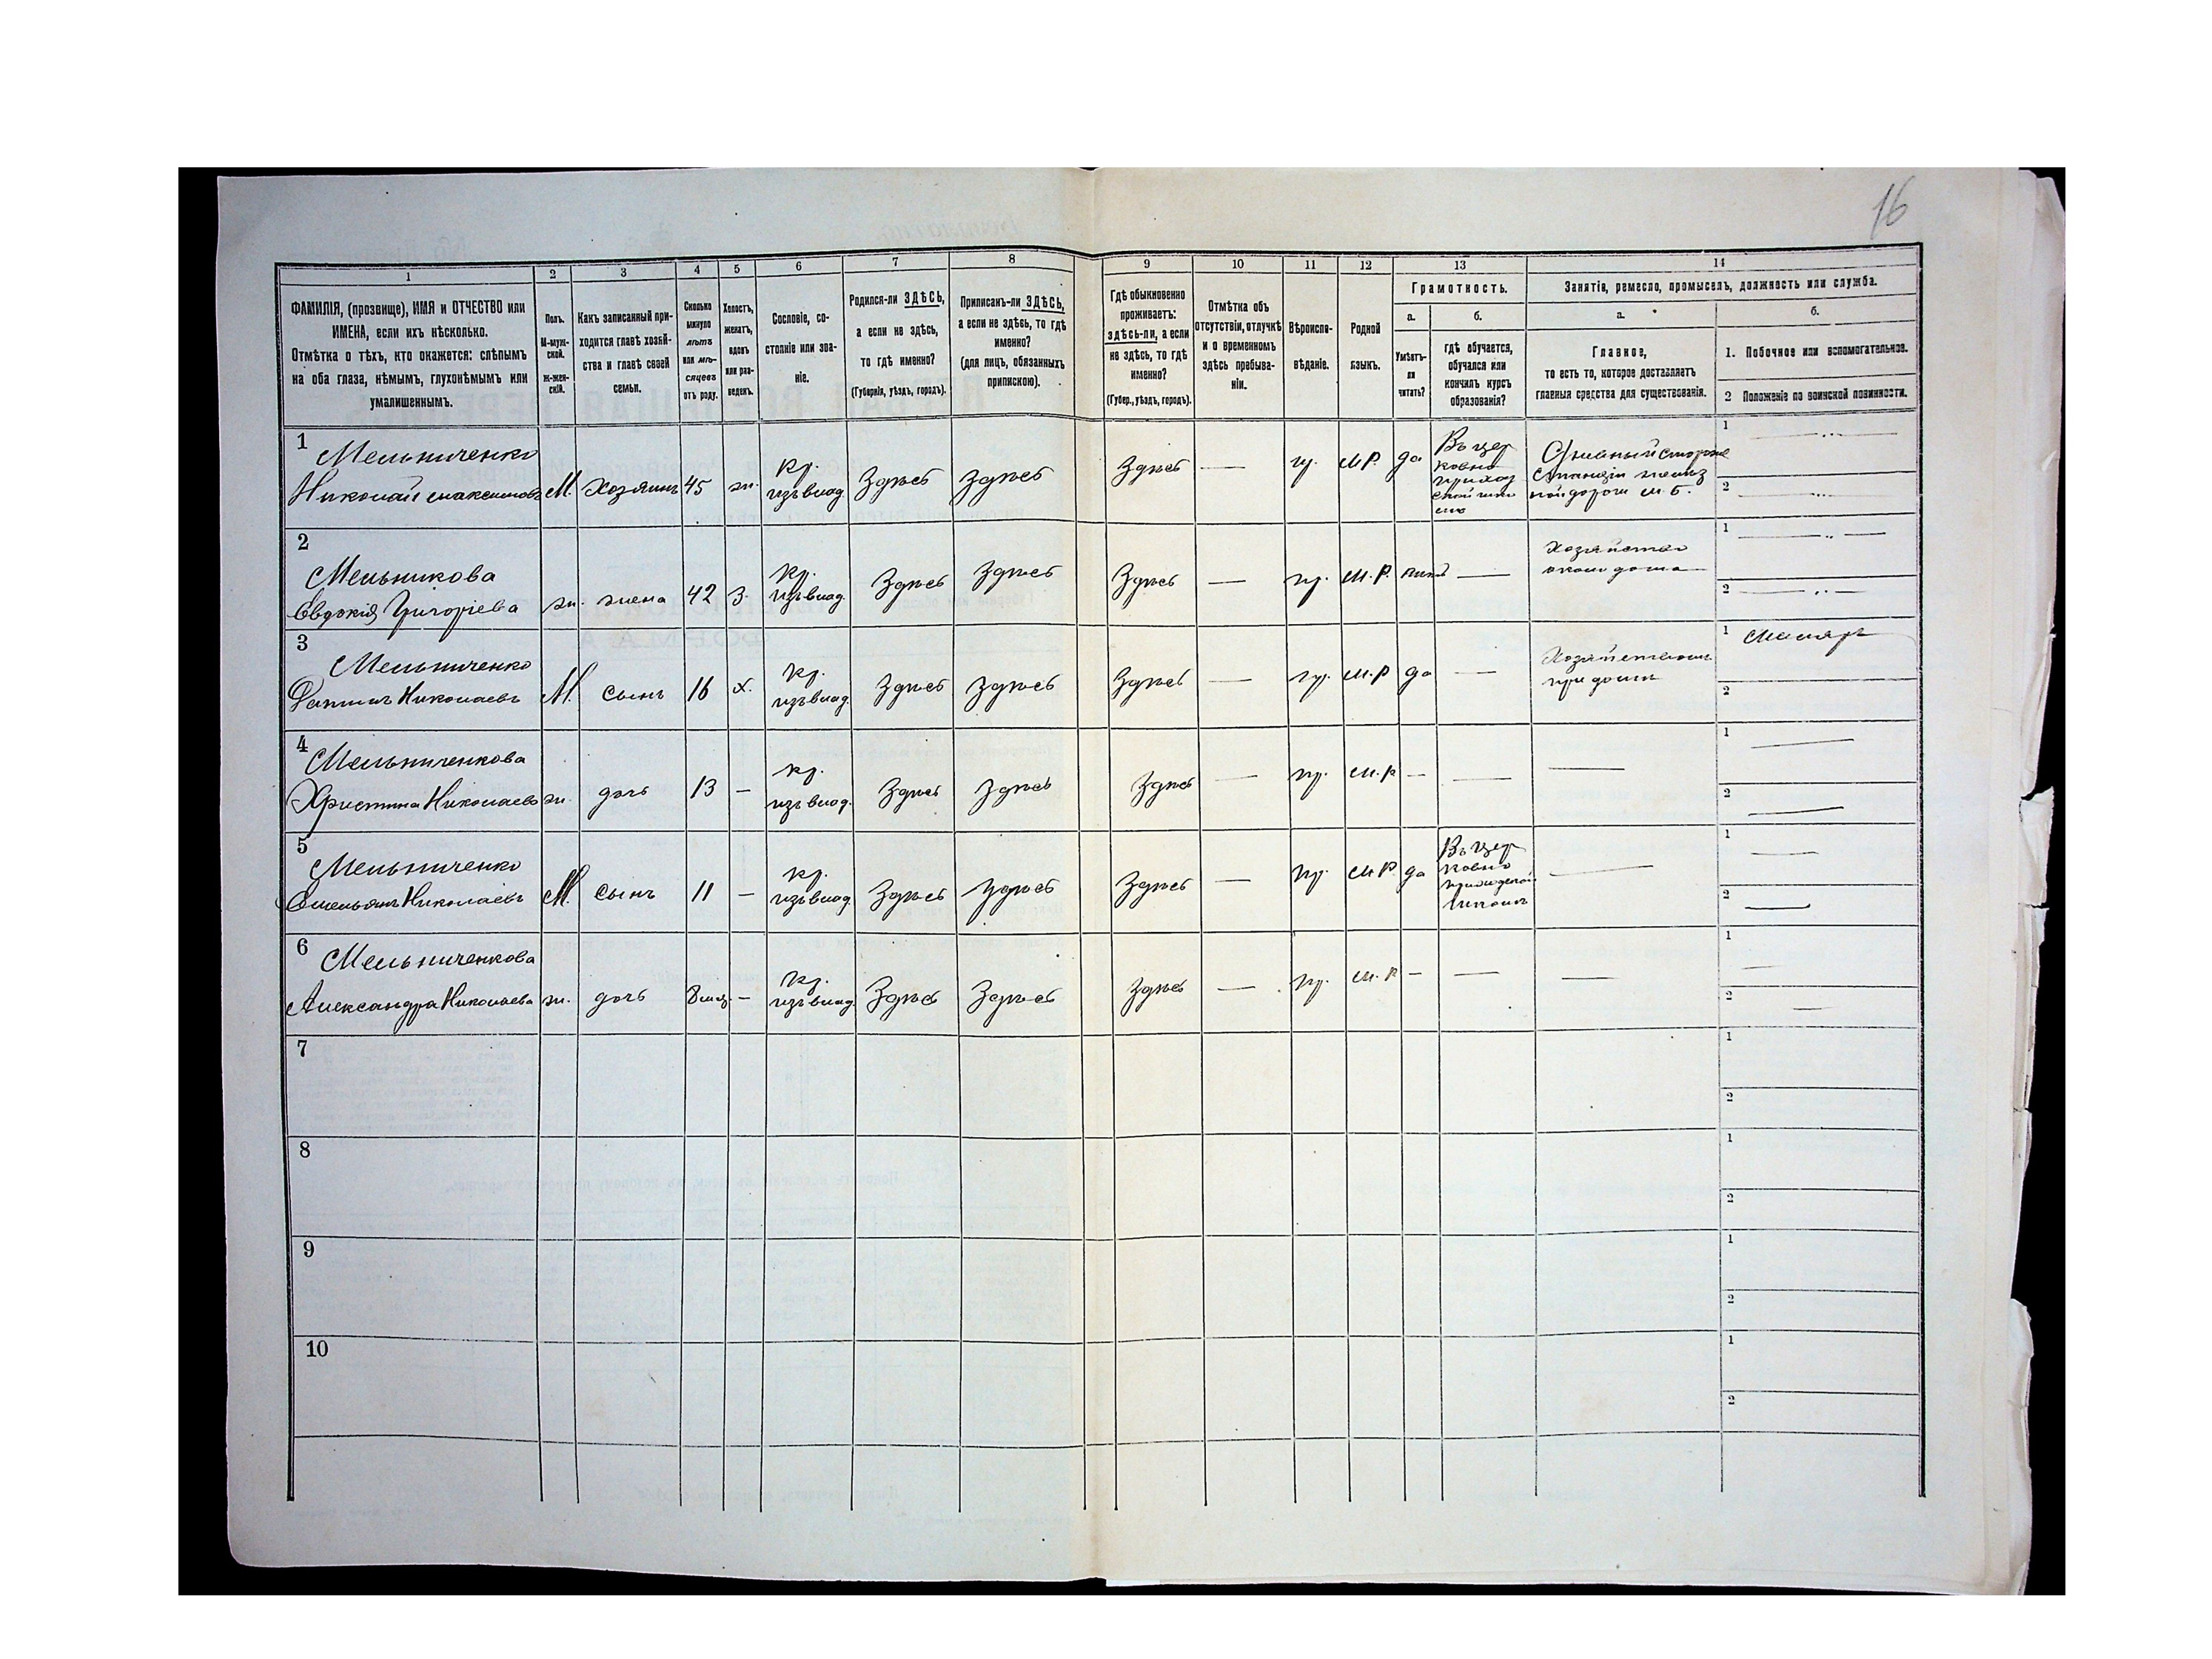 16
1
2
3
4
5
6
7
8
9
10
11
12
13
14
ФАМИЛІЯ, (прозвище), ИМЯ и ОТЧЕСТВО или
ИМЕНА, если ихъ нѣсколько.
Отмѣтка о тѣхъ, кто окажется: слѣпымъ
на оба глаза, нѣмымъ, глухонѣмымъ или
умалишеннымъ.
Полъ.
М-муж-
ской.
Ж-жен-
скій.
Какъ записанный при-
ходится главѣ хозяй-
ства и главѣ своей
семьи.
Сколько
минуло
лѣтъ
или мѣ-
сяцевъ
отъ роду.
Холостъ,
женатъ,
вдовъ
или раз-
веденъ.
Сословіе, со-
стояніе или зва-
ніе.
Родился-ли ЗДѢСЬ,
а если не здѣсь,
то гдѣ именно?
(Губернія, уѣздъ, городъ).
Приписанъ-ли ЗДѢСЬ,
а если не здѣсь, то гдѣ
именно?
(для лицъ, обязанныхъ
припискою).
Гдѣ обыкновенно
проживаетъ:
здѣсь-ли, а если
не здѣсь, то гдѣ
именно?
(Губер., уѣздъ, городъ).
Отмѣтка объ
отсутствіи, отлучкѣ
и о временномъ
здѣсь пребыва-
ніи.
Вѣроиспо-
вѣданіе.
Родной
языкъ.
Грамотность.
а.
Умѣетъ-
ли
читать?
б.
гдѣ обучается,
обучался или
кончилъ курсъ
образованія?
Занятіе, ремесло, промыселъ, должность или служба.
а.
Главное,
то есть то, которое доставляетъ
главныя средства для существованія.
б.
1. Побочное или вспомогательное.
2 Положеніе по воинской повинности.
1
Мельниченко
Николай Максимовъ М. Хозяинъ 45 ж. кр.
изъ влад. Здѣсь Здѣсь Здѣсь — пр. М.Р. да
Въ цер
ковно
приход
ской шко
лѣ
сторожъ
Станціи желѣз
ной дороги
1
2
2
Мельникова
Евдокія Григоріева ж. жена 42 З. кр.
изъ влад. Здѣсь Здѣсь Здѣсь — пр. М.Р. —
Хозяйство
около дома
1
2
3
Мельниченко
Николаевъ М. сынъ 16 х. кр.
изъ влад. Здѣсь Здѣсь Здѣсь — пр. М.Р да —
при домѣ
1 Маляръ
2
4
Мельниченкова
Христина Николаева ж. дочь 13 — кр.
изъ влад. Здѣсь Здѣсь Здѣсь — пр. М.Р — — —
1
2
5
Мельниченко
Емельянъ Николаевъ М. сынъ 11 — кр.
изъ влад. Здѣсь Здѣсь Здѣсь — пр. М.Р. да
Въ цер
ковно
приходской
школѣ
1
2
6
Мельниченкова
Александра Николаева ж. дочь 8 мѣс. — кр.
изъ влад. Здѣсь Здѣсь Здѣсь — пр. М.Р — — —
1
2
7
1
2
8
1
2
9
1
2
10
1
2